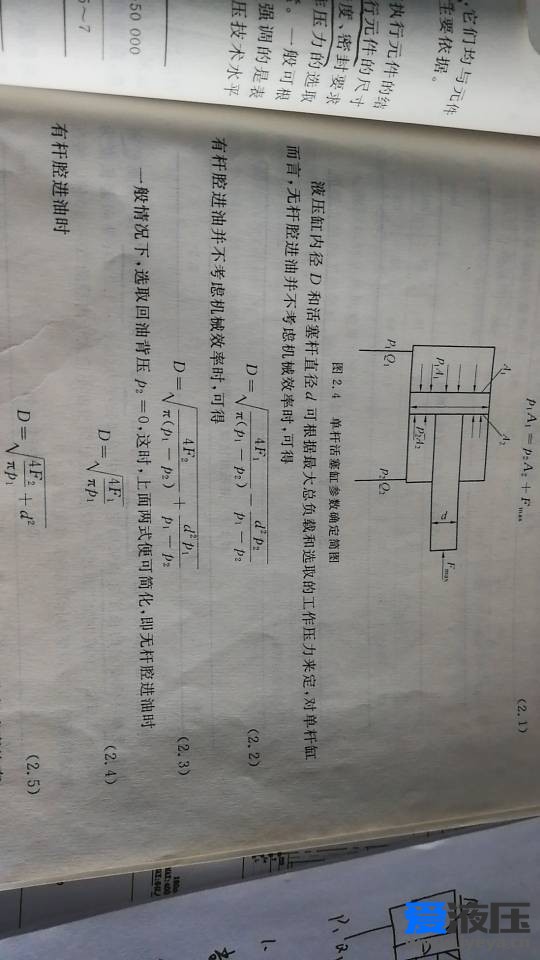 ,它们均与元件
主要依据。
执行元件的结
行元件的尺寸
度、密封要求
作压力的选取
。一般可根
强调的是表
压技术水平
50 000
5~7
p₁A₁=p₂A₂+Fmax
(2.1)
A₁
A₂
p₁A₁
p₂A₂
d
Fmax
p₁Q₁
p₂Q₂
图 2.4 单杆活塞缸参数确定简图
液压缸内径 D 和活塞杆直径 d 可根据最大总负载和选取的工作压力来定,对单杆缸
而言,无杆腔进油并不考虑机械效率时,可得
D=√(4F₁/π(p₁-p₂) - d²p₂/(p₁-p₂))
(2.2)
有杆腔进油并不考虑机械效率时,可得
D=√(4F₂/π(p₁-p₂) + d²p₁/(p₁-p₂))
(2.3)
一般情况下,选取回油背压 p₂=0,这时,上面两式便可简化,即无杆腔进油时
D=√(4F₁/πp₁)
(2.4)
有杆腔进油时
D=√(4F₂/πp₁ + d²)
(2.5)
P₁Q₁
1.
爱液压